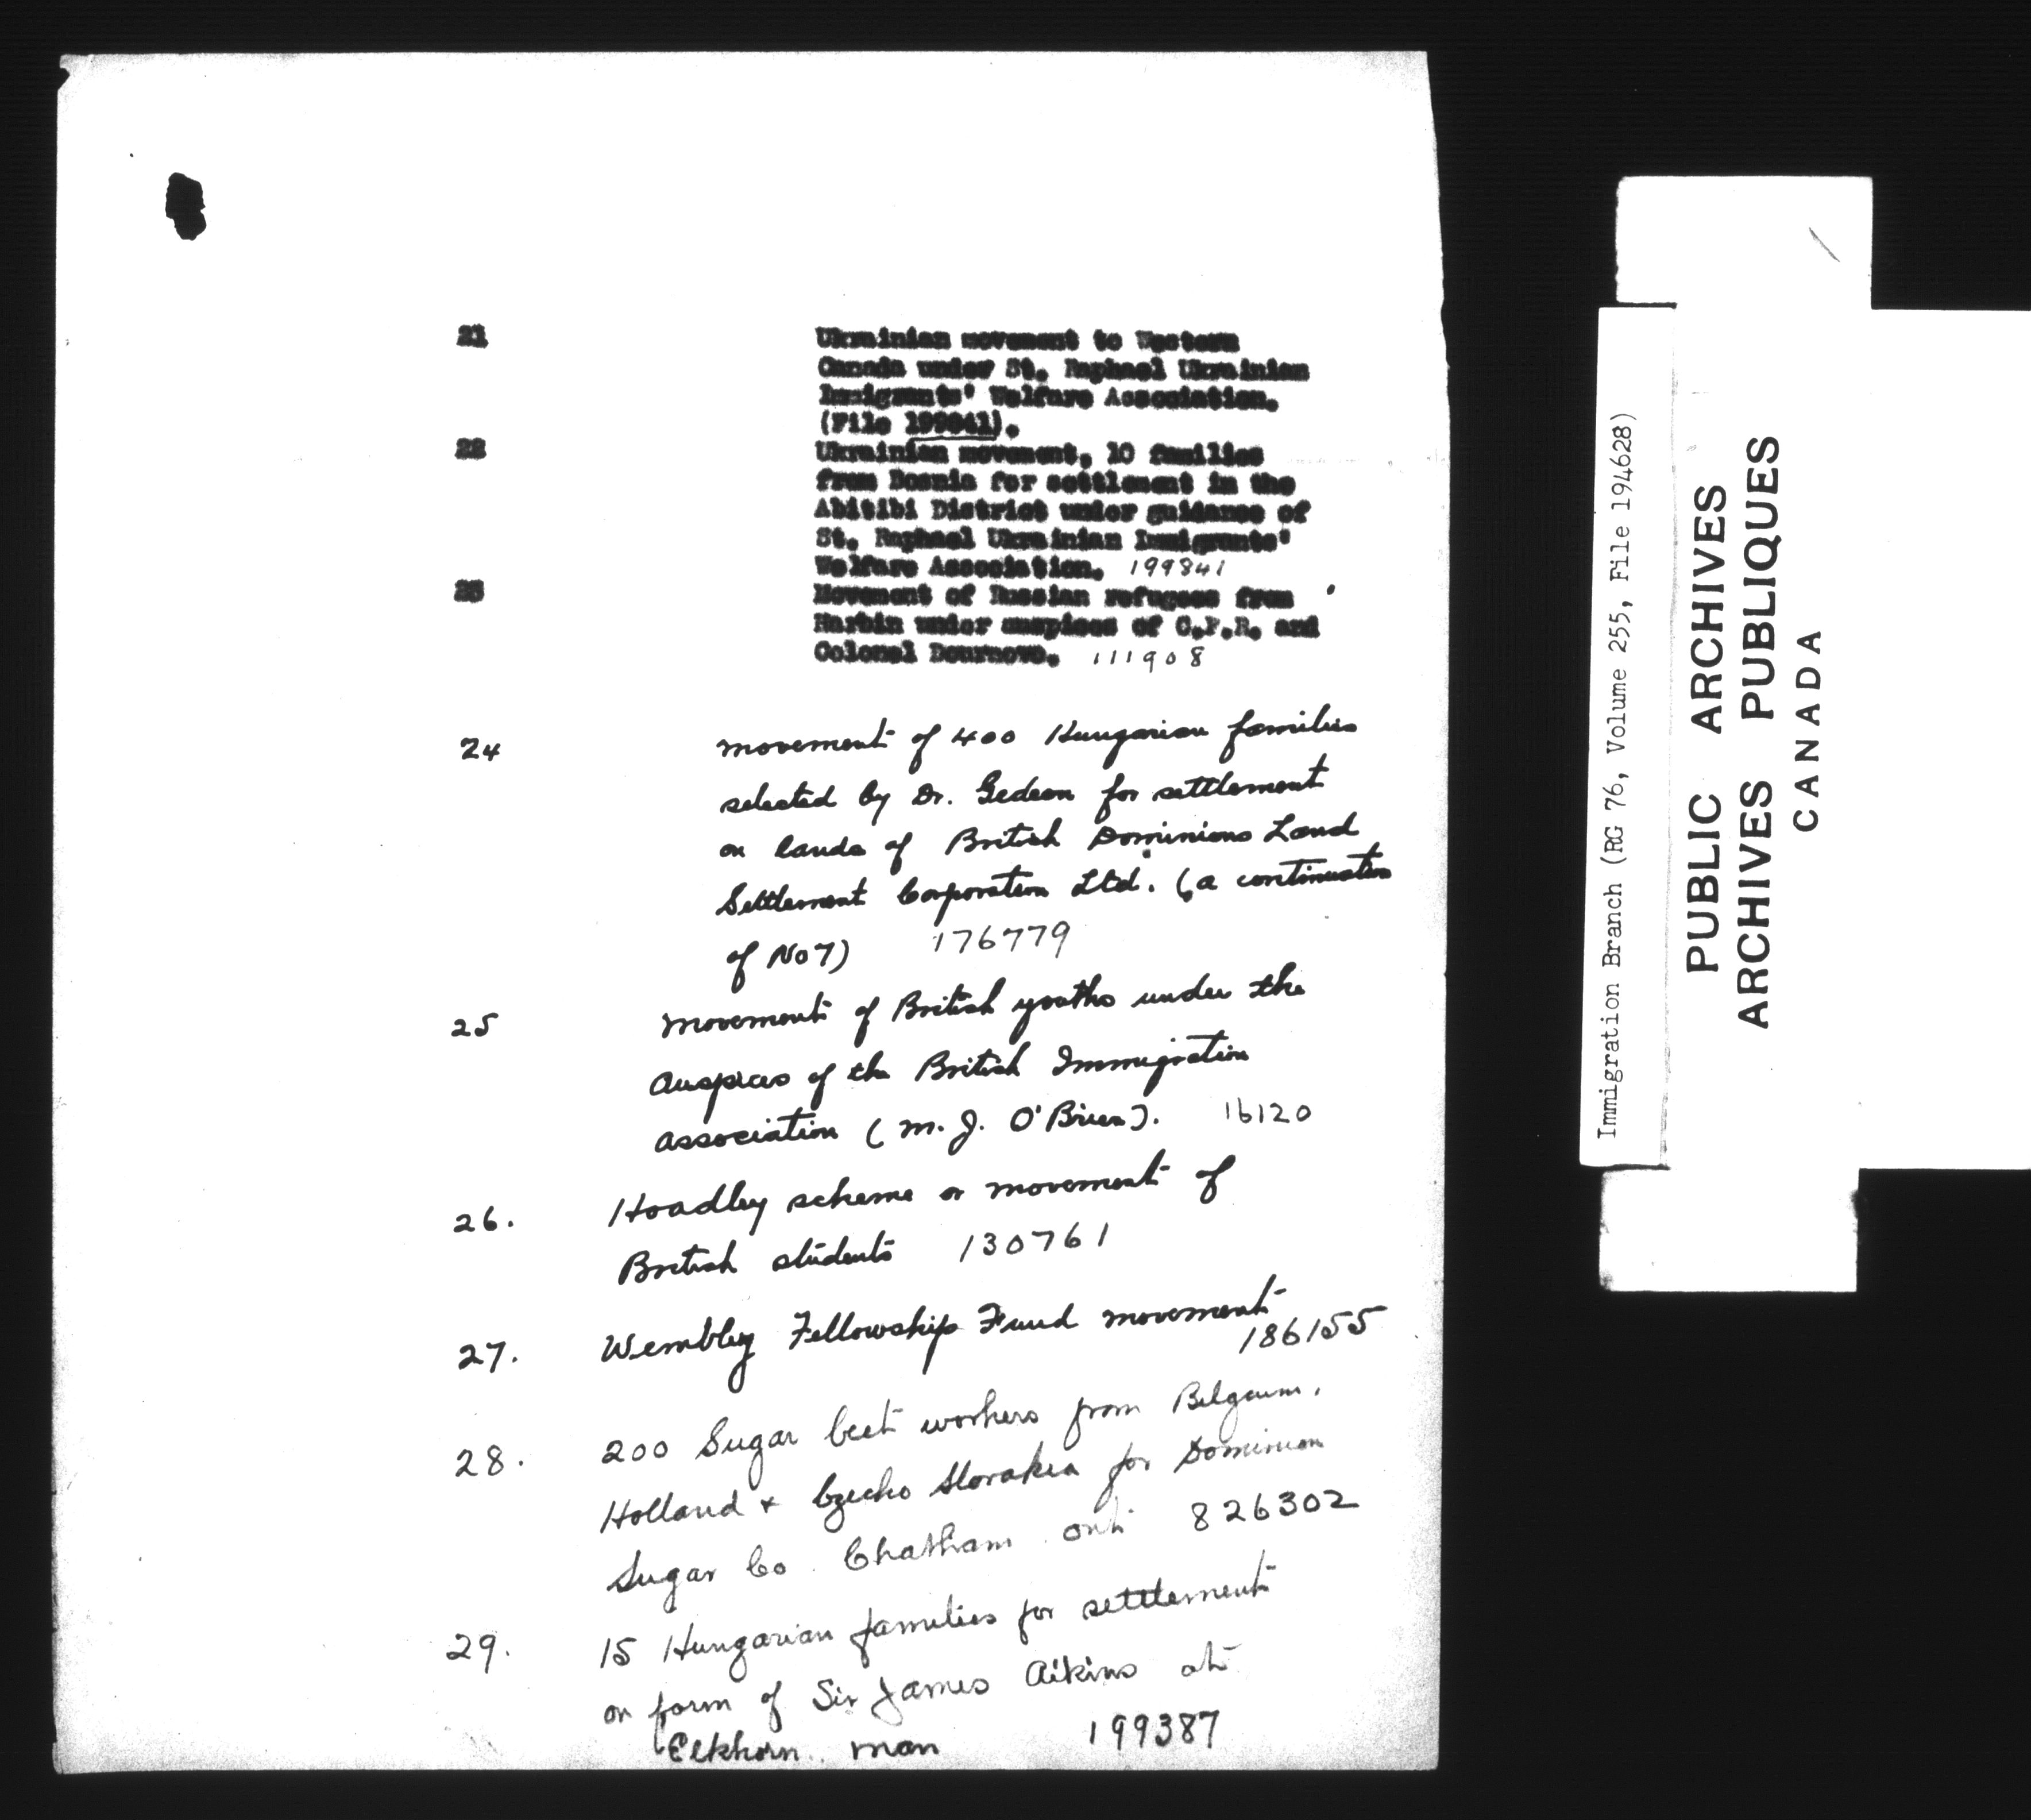 21 Ukrainian movement to Western
Canada under St. Raphael Ukrainian
Immigrants' Welfare Association.
(File 199841).
22 Ukrainian movement, 10 families
from Bosnia for settlement in the
Abitibi District under guidance of
St. Raphael Ukrainian Immigrants'
Welfare Association. 199841
23 Movement of Russian refugees from
Harbin under auspices of C.P.R. and
Colonel Dournovo. 111908
24 movement of 400 Hungarian families
selected by Dr. Gedeon for settlement
on lands of British Dominions Land
Settlement Corporation Ltd. (a continuation
of No 7) 176779
25 movement of British youths under the
auspices of the British Immigration
association (M. J. O'Brien). 16120
26. Hoadley scheme or movement of
British students 130761
27. Wembley Fellowship Fund movement
186155
28. 200 Sugar beet workers from Belgium,
Holland & Czecho Slovakia for Dominion
Sugar Co. Chatham Ont 826302
29. 15 Hungarian families for settlement
on farm of Sir James Aikins at
Elkhorn. Man 199387
Immigration Branch (RG 76, Volume 255, File 194628)
PUBLIC ARCHIVES
ARCHIVES PUBLIQUES
CANADA